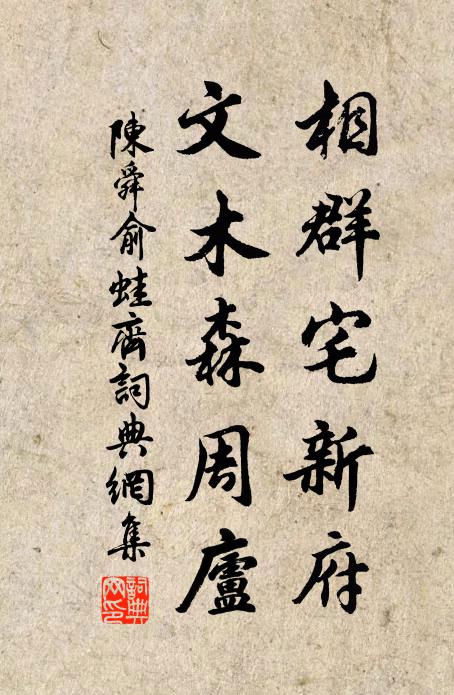 相群宅新府
文木森周廬
陳舜俞蛙齋詞典網集
詞典
網印